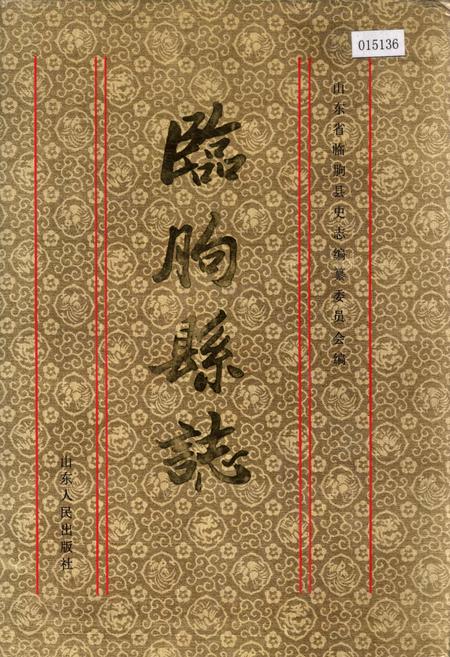 015136
山东省临朐县史志编纂委员会编
臨朐縣誌
山东人民出版社